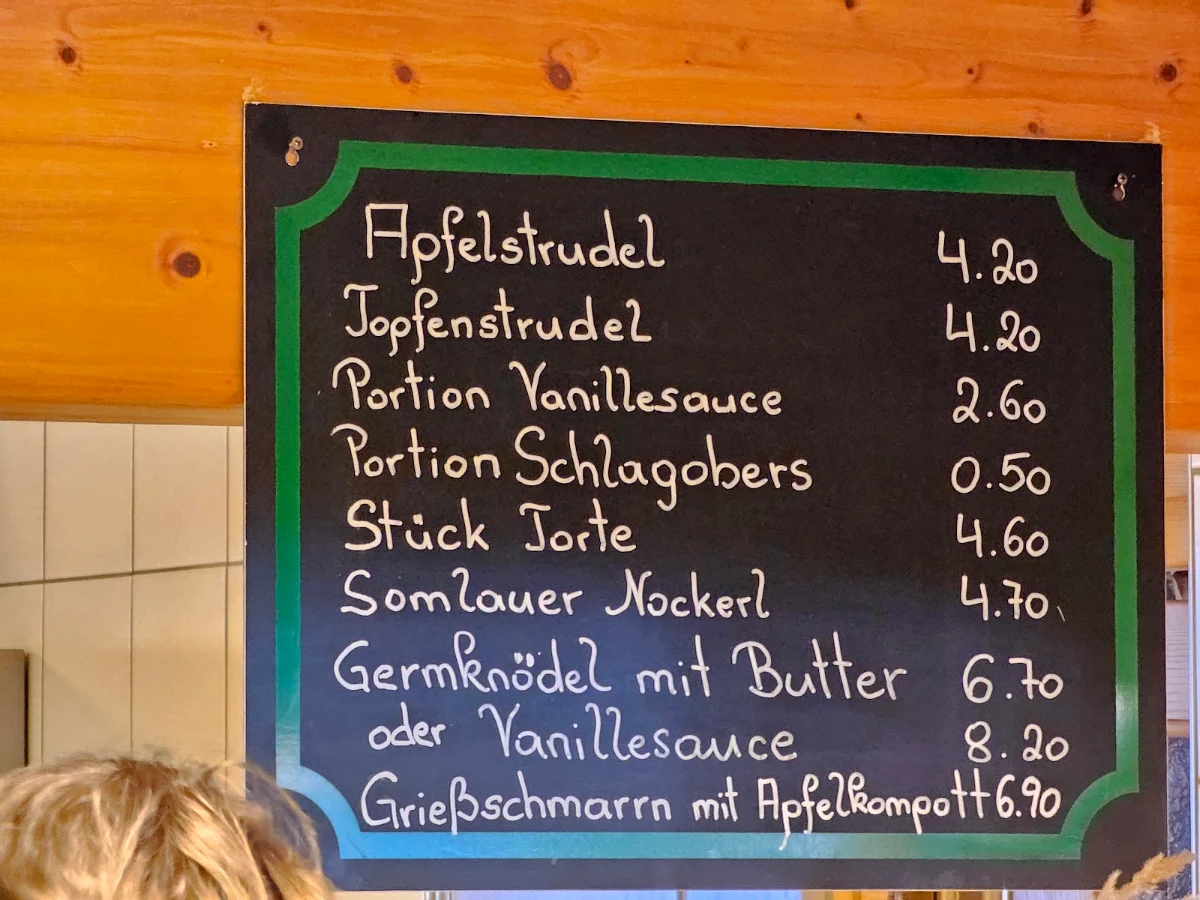 Apfelstrudel 4.20
Topfenstrudel 4.20
Portion Vanillesauce 2.60
Portion Schlagobers 0.50
Stück Torte 4.60
Somlauer Nockerl 4.70
Germknödel mit Butter 6.70
oder Vanillesauce 8.20
Grießschmarrn mit Apfelkompott 6.90